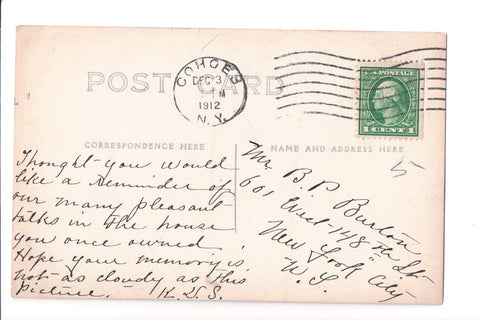 POST CARD
COHOES
DEC 3
PM
1912
N.Y.
U.S. POSTAGE
1 CENT 1
CORRESPONDENCE HERE
NAME AND ADDRESS HERE
Thought you would
like a reminder of
our many pleasant
talks in the house
you once owned.
Hope your memory is
not as cloudy as this
picture. K.D.S.
Mr. B. P. Burton
601 West-148th St
New York City
N.Y.
5